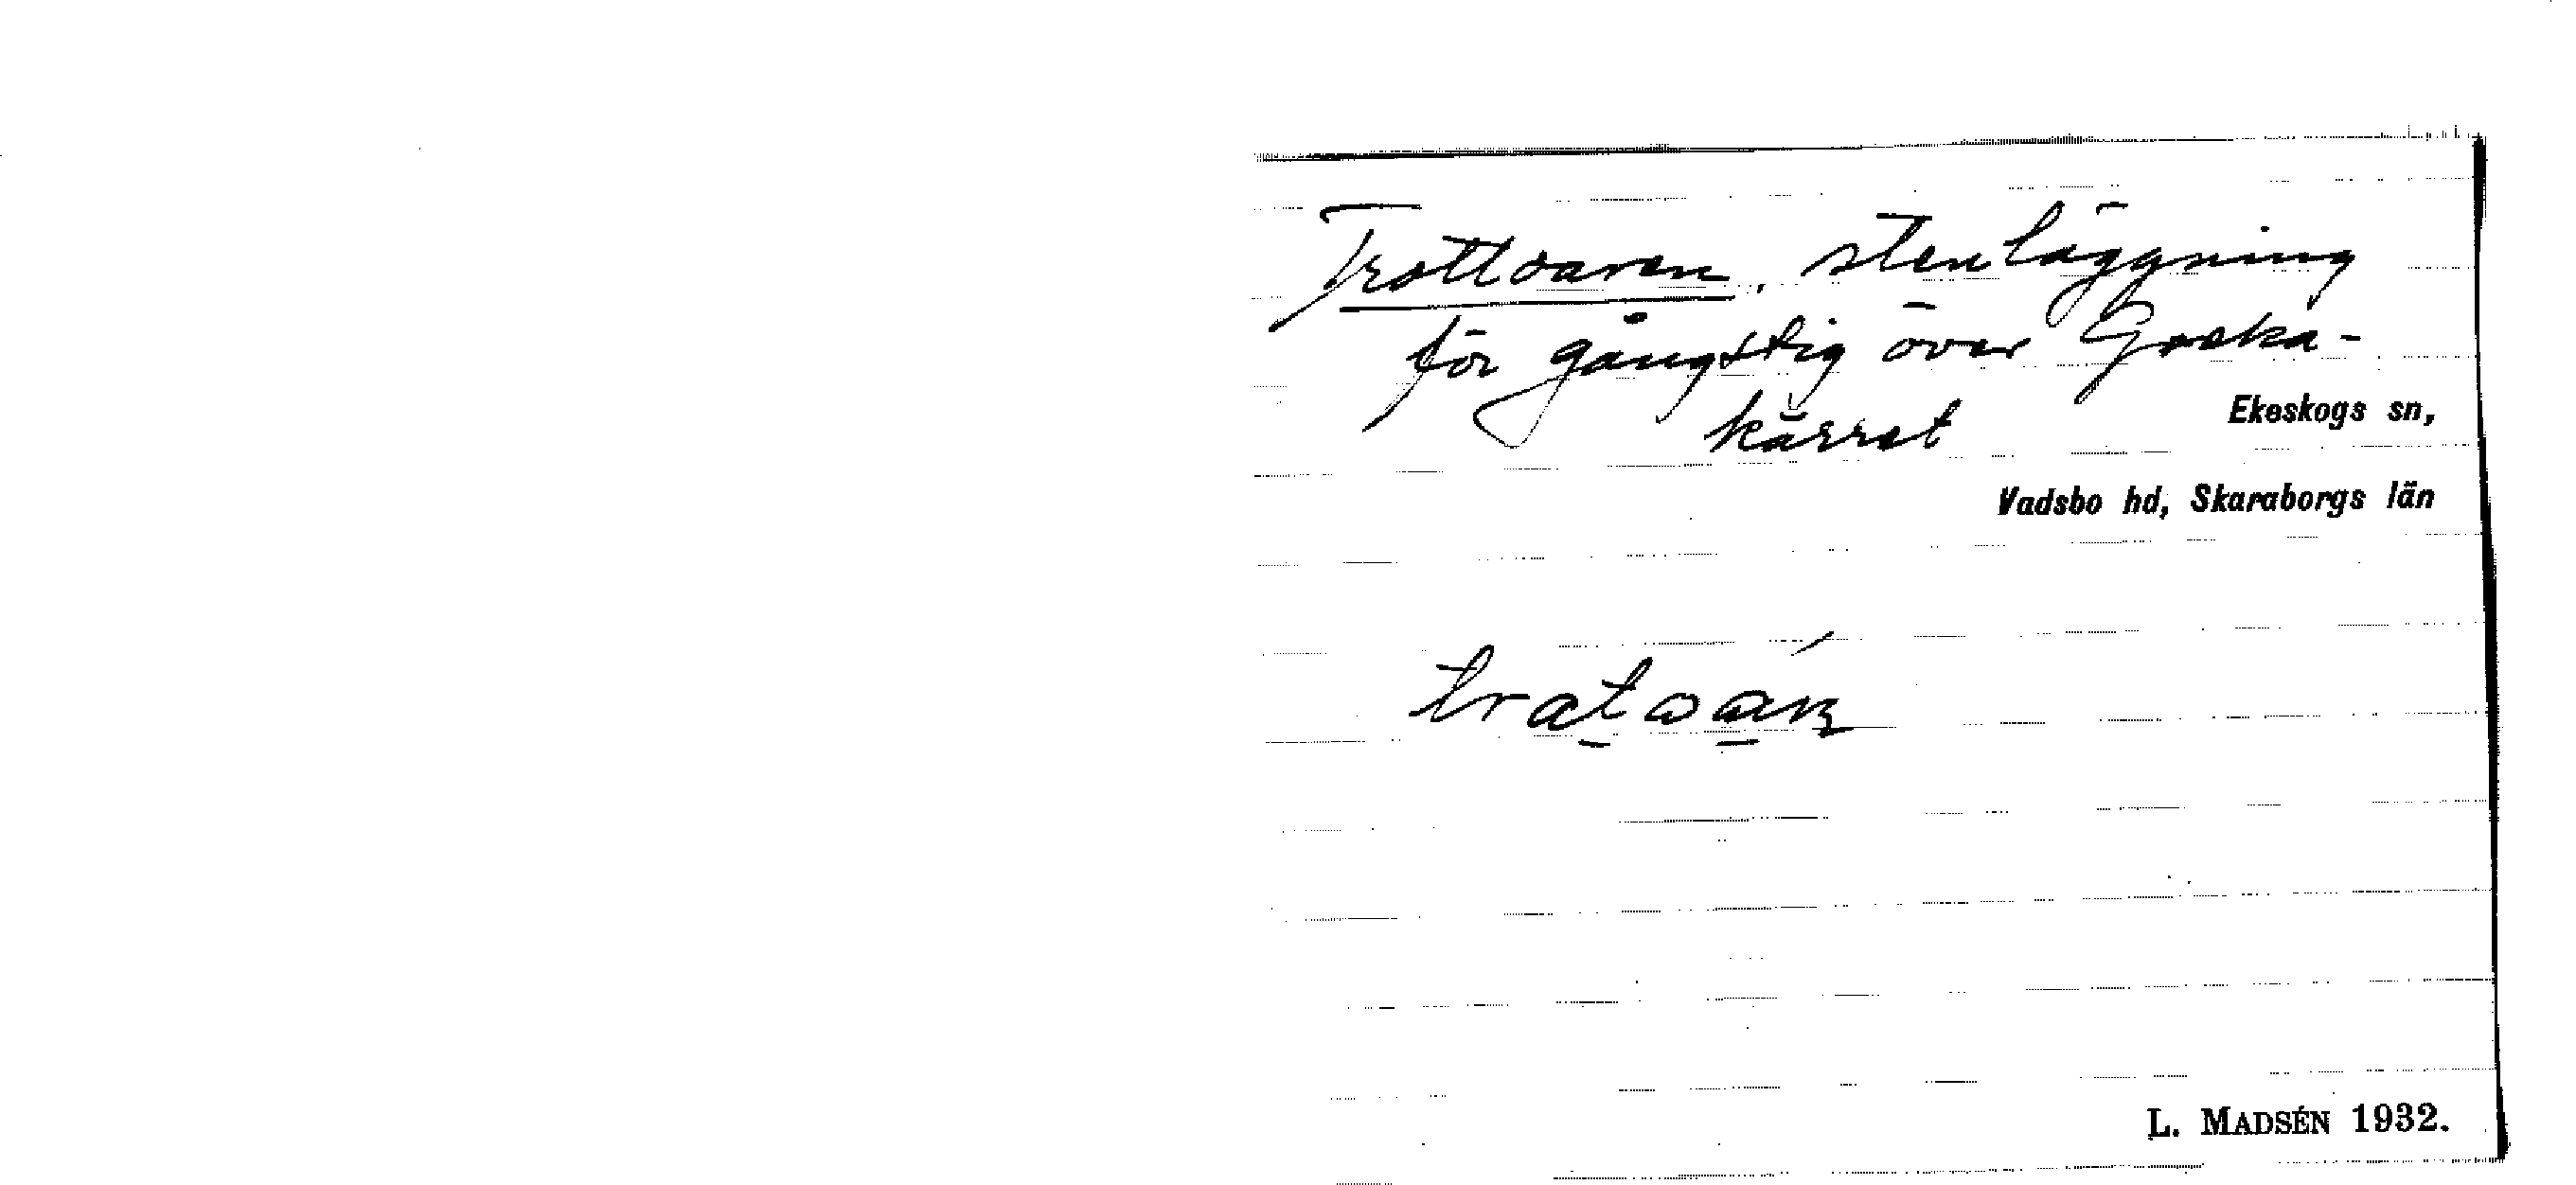 Trottoaren, stenläggning
för gångstig över
kärret
Ekeskogs sn,
Vadsbo hd, Skaraborgs län
L. MADSÉN 1932.